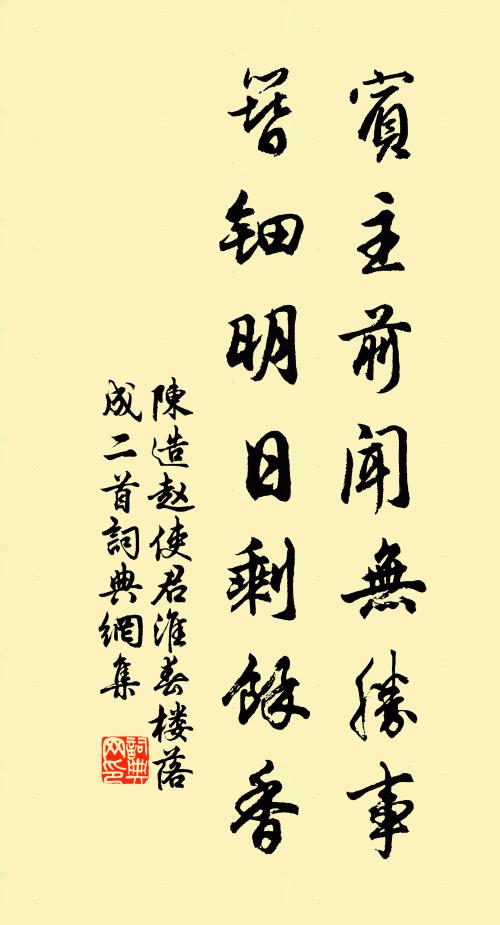 賓主前聞無勝事
簪鈿明日剩餘香
陳造赵使君淮春楼落
成二首詞典網集
詞典網印